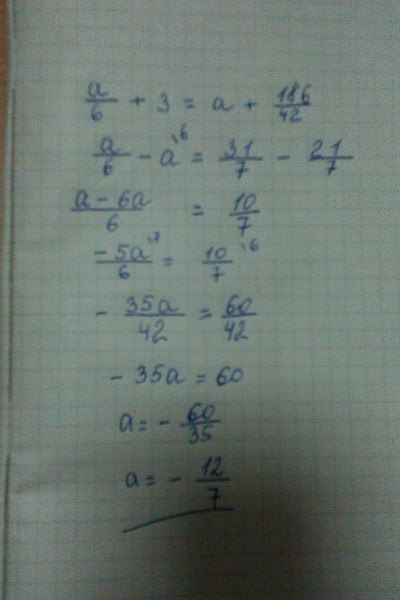 a/6 + 3 = a + 186/42
a/6 - a\6 = 31/7 - 21/7
a - 6a/6 = 10/7
-5a\7/6 = 10/7\6
- 35a/42 = 60/42
- 35a = 60
a = - 60/35
a = - 12/7